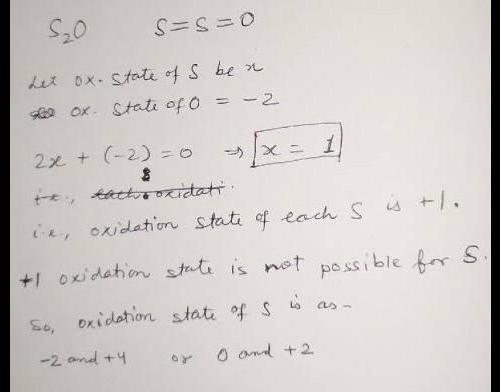 S₂O S=S=O
Let ox. state of S be x
ox. state of O = -2
2x + (-2) = 0 ⇒ x = 1
i.e., each oxidati.
i.e., oxidation state of each S is +1.
+1 oxidation state is not possible for S.
So, oxidation state of S is as-
-2 and +4 or 0 and +2